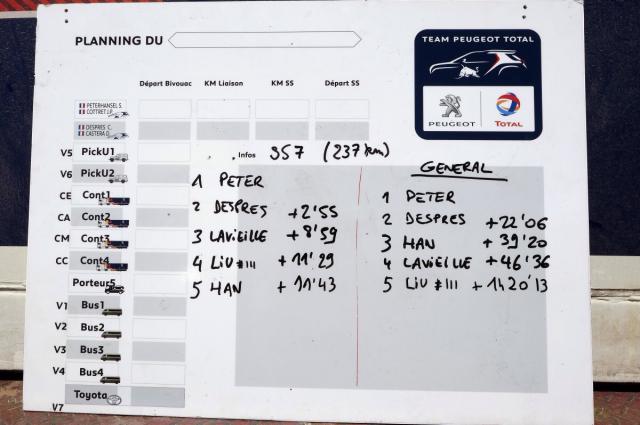 PLANNING DU
TEAM PEUGEOT TOTAL
PEUGEOT TOTAL
Départ Bivouac KM Liaison KM SS Départ SS
PETERHANSEL S.
COTTRET J.P.
DESPRES C.
CASTERA D.
V5 PickU1
Infos SS7 (237 km)
V6 PickU2
CE Cont1
CA Cont2
CM Cont3
CC Cont4
Porteur5
V1 Bus1
V2 Bus2
V3 Bus3
V4 Bus4
Toyota
V7
1 PETER
2 DESPRES +2'55
3 LAVIEILLE +8'59
4 LIU #111 +11'29
5 HAN +11'43
GENERAL
1 PETER
2 DESPRES +22'06
3 HAN +39'20
4 LAVIEILLE +46'36
5 LIU #111 +1H20'13